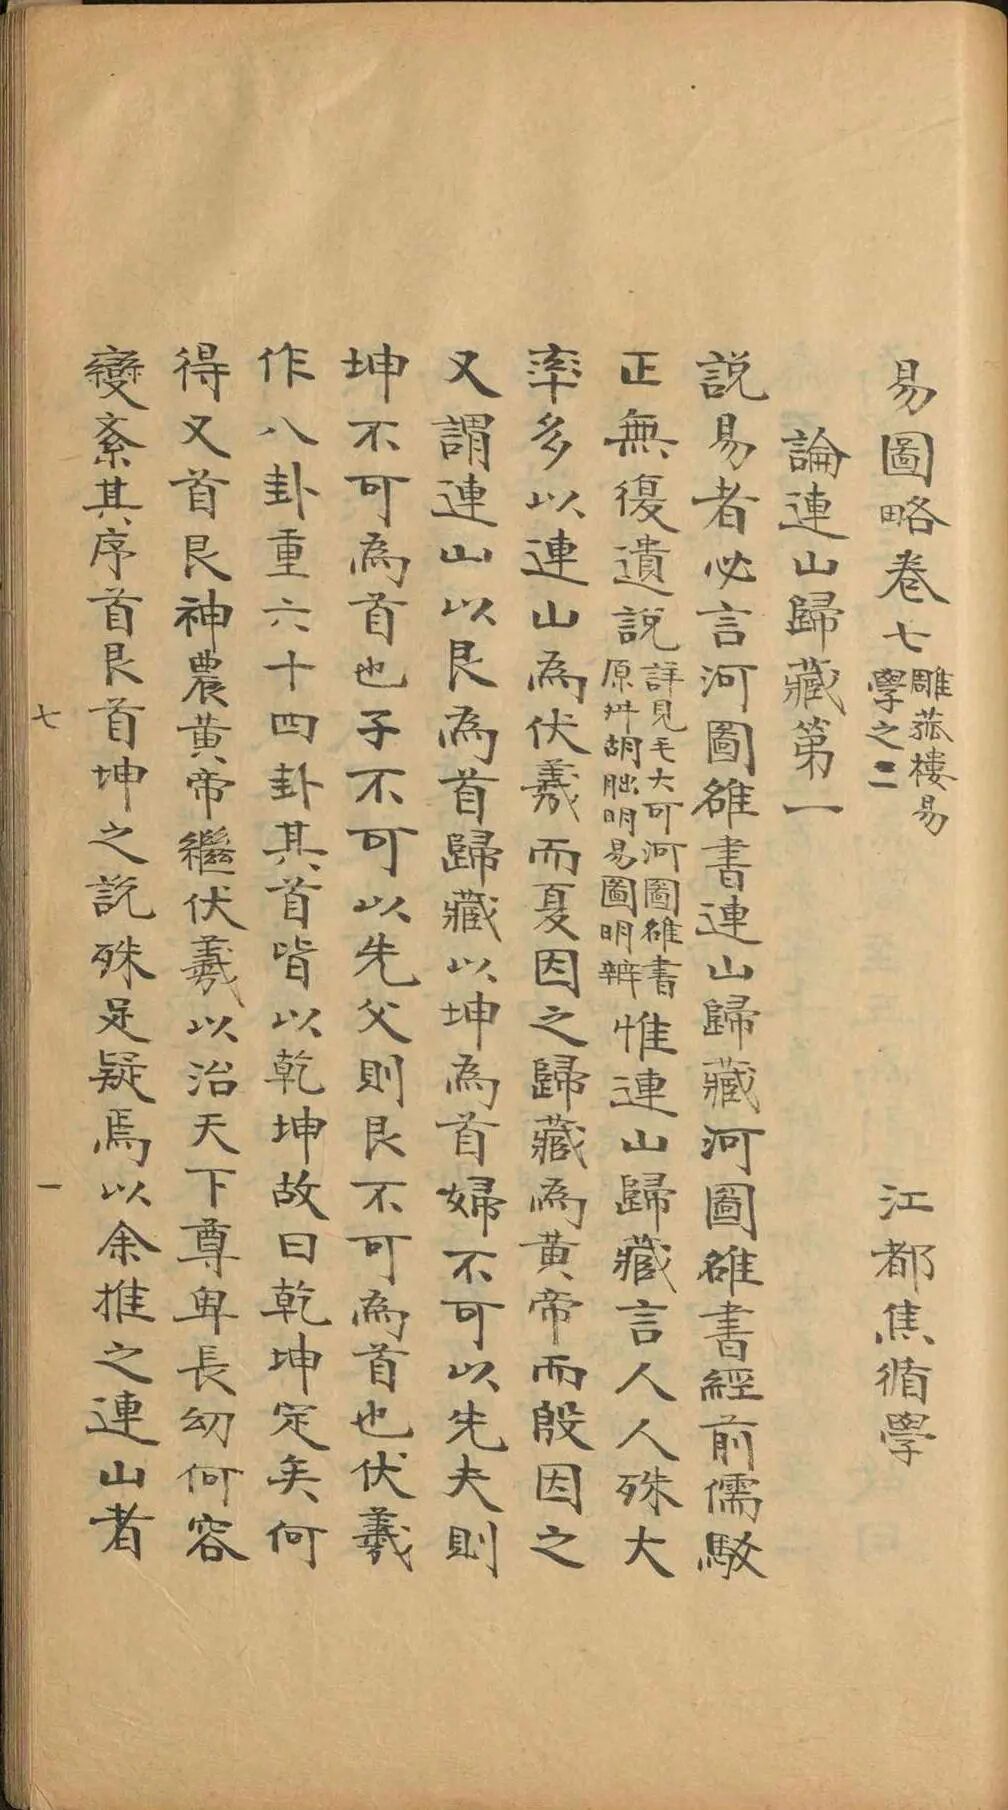 易圖略卷七雕菰樓易學之二 江都焦循學
論連山歸藏第一
説易者必言河圖雒書連山歸藏河圖雒書經前儒駁
正無復遺説詳見毛大可河圖雒書原舛胡朏明易圖明辨惟連山歸藏言人人殊大
率多以連山為伏羲而夏因之歸藏為黄帝而殷因之
又謂連山以艮為首歸藏以坤為首婦不可以先夫則
坤不可為首也子不可以先父則艮不可為首也伏羲
作八卦重六十四卦其首皆以乾坤故曰乾坤定矣何
得又首艮神農黄帝繼伏羲以治天下尊卑長幼何容
變紊其序首艮首坤之説殊足疑焉以余推之連山者
七 一